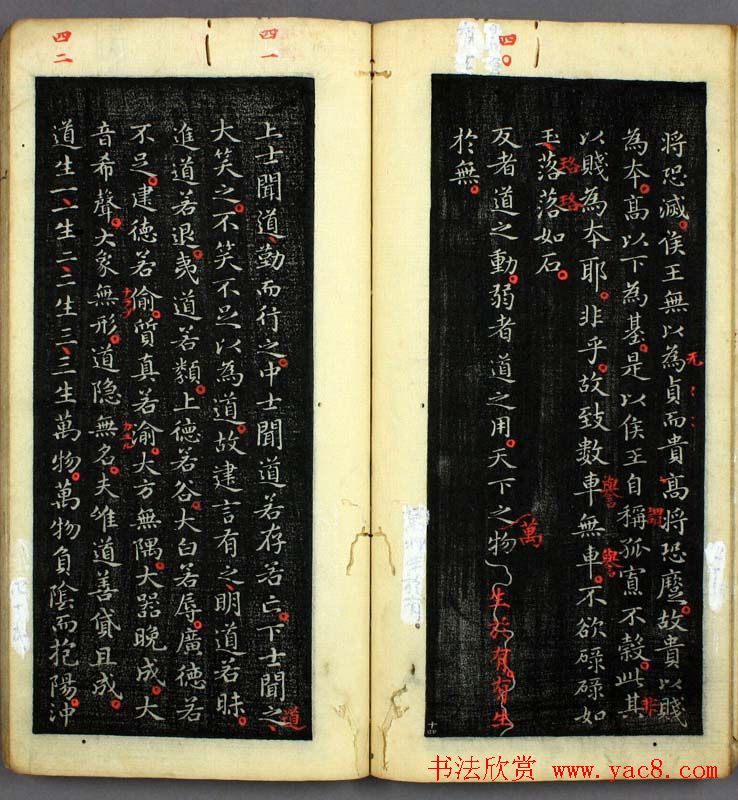 四〇
將恐滅侯王無以為貞而貴髙將恐蹷故貴以賤
无
為本髙以下為基是以侯王自稱孤寡不穀此其
謂
非
以賤為本耶非乎故致數車無車不欲碌碌如
譽
譽
玉落落如石
珞珞
反者道之動弱者道之用天下之物生於有有生
萬
於無
四一
上士聞道勤而行之中士聞道若存若亡下士聞之
道
大笑之不笑不足以為道故建言有之明道若昧
進道若退夷道若纇上徳若谷大白若辱廣徳若
不足建徳若偷質真若渝大方無隅大器晚成大
音希聲大象無形道隐無名夫惟道善貸且成
四二
道生一一生二二生三三生萬物萬物負陰而抱陽沖
书法欣赏 www.yac8.com